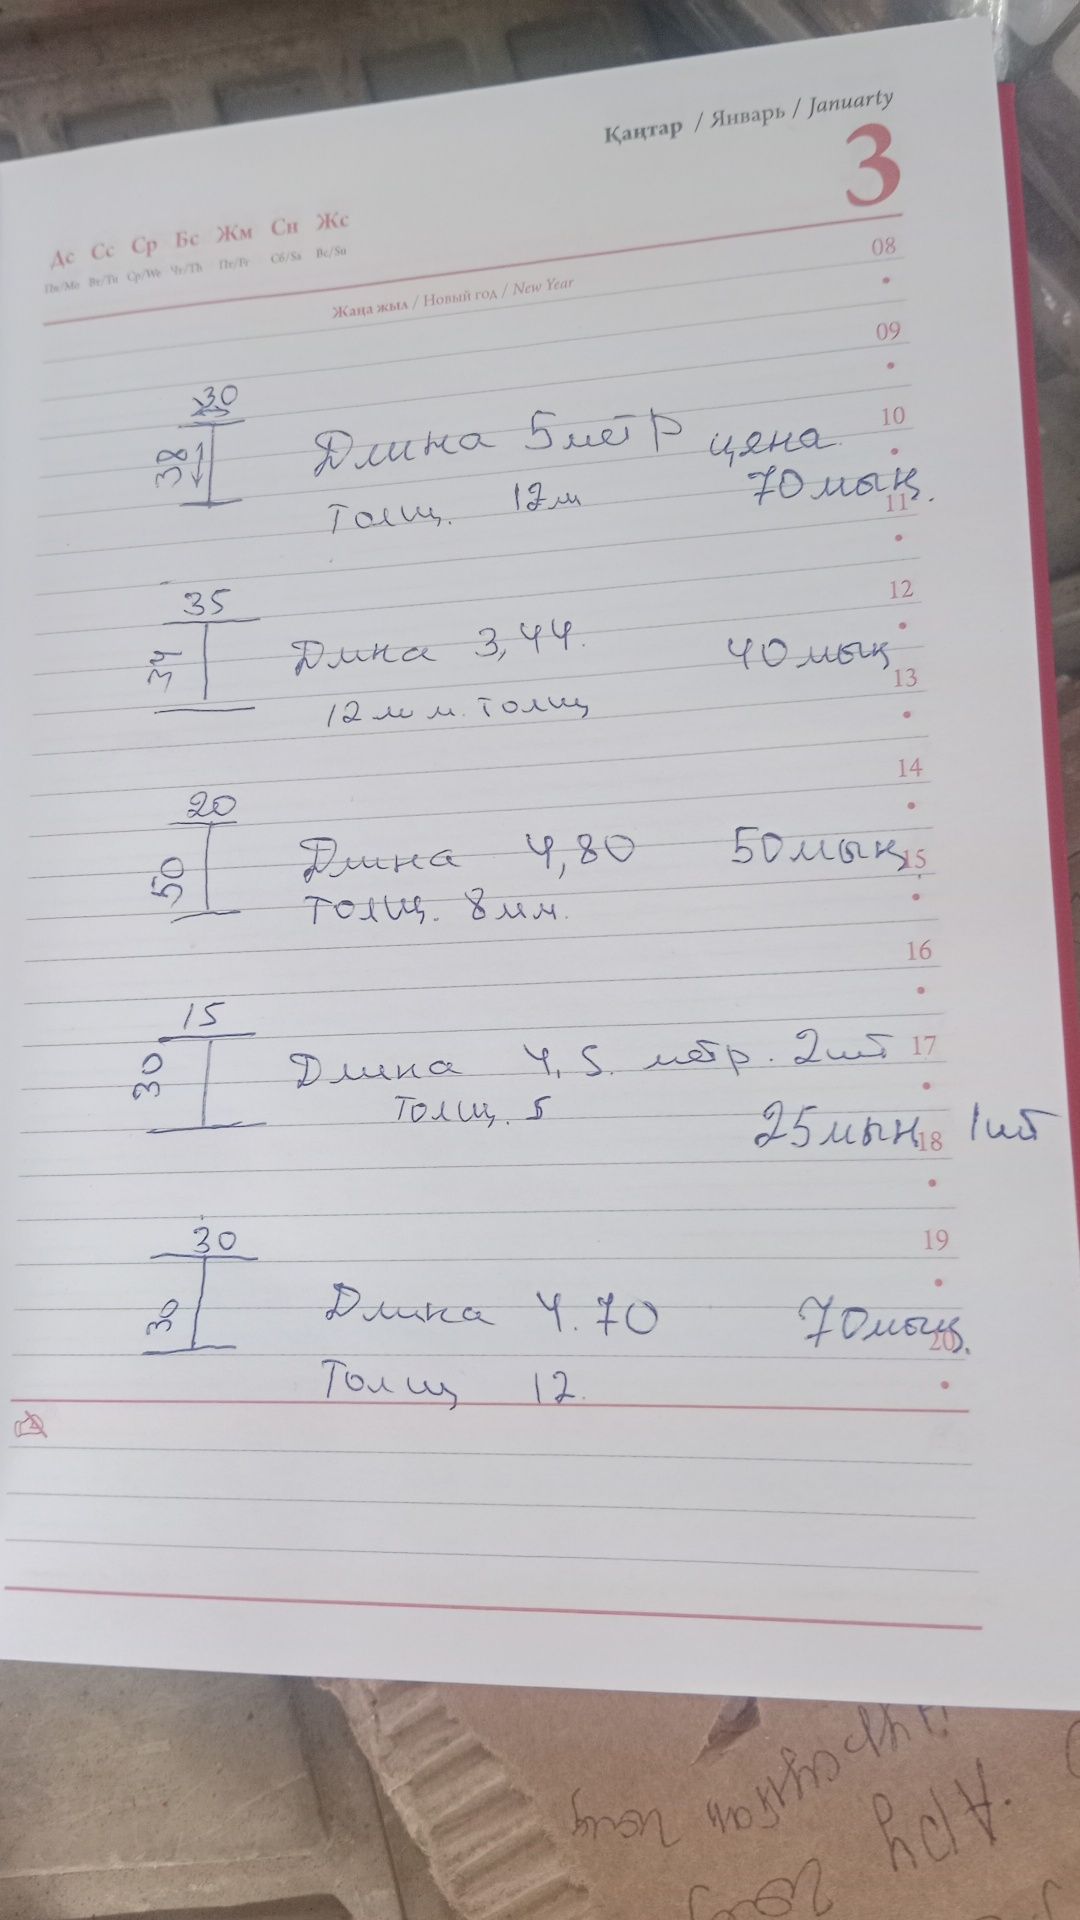 Қаңтар / Январь / Januarty
3
Дс Сс Ср Бс Жм Сн Жс
Пн/Mo Вт/Tu Ср/We Чт/Th Пт/Fr Сб/Sa Вс/Su
08
Жаңа жыл / Новый год / New Year
09
30
10
38 Длина 5 метр цяна
Толщ. 12м 70мың.
11
12
35
34 Длина 3,44. 40мың
13
12 мм. толщ
14
20
50 Длина 4,80 50мың
15
Толщ. 8мм.
16
15
30 Длина 4,5. метр. 2шт
17
Толщ. 5
25мың 1шт
18
30
19
30 Длина 4.70 70мың.
20
Толщ 12.